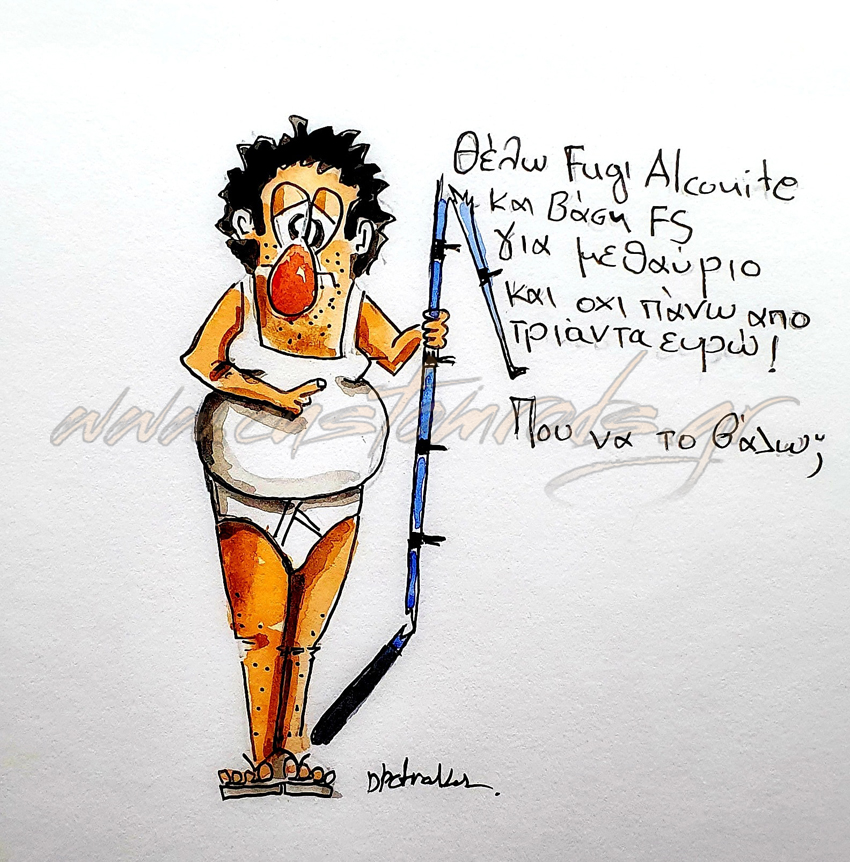 Θέλω Fugi Alconite
και Βάση FS
για μεθαύριο
και οχι πάνω απο
τριάντα ευρώ!
Που να το βάλω;
www.customrods.gr